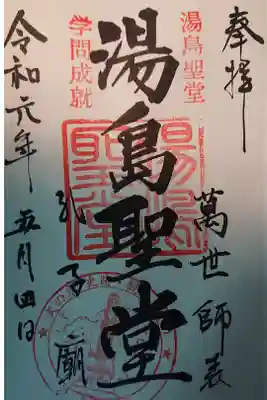 奉拝
湯島聖堂
萬世師表
湯島聖堂
湯島聖堂
孔子廟
学問成就
令和元年五月四日